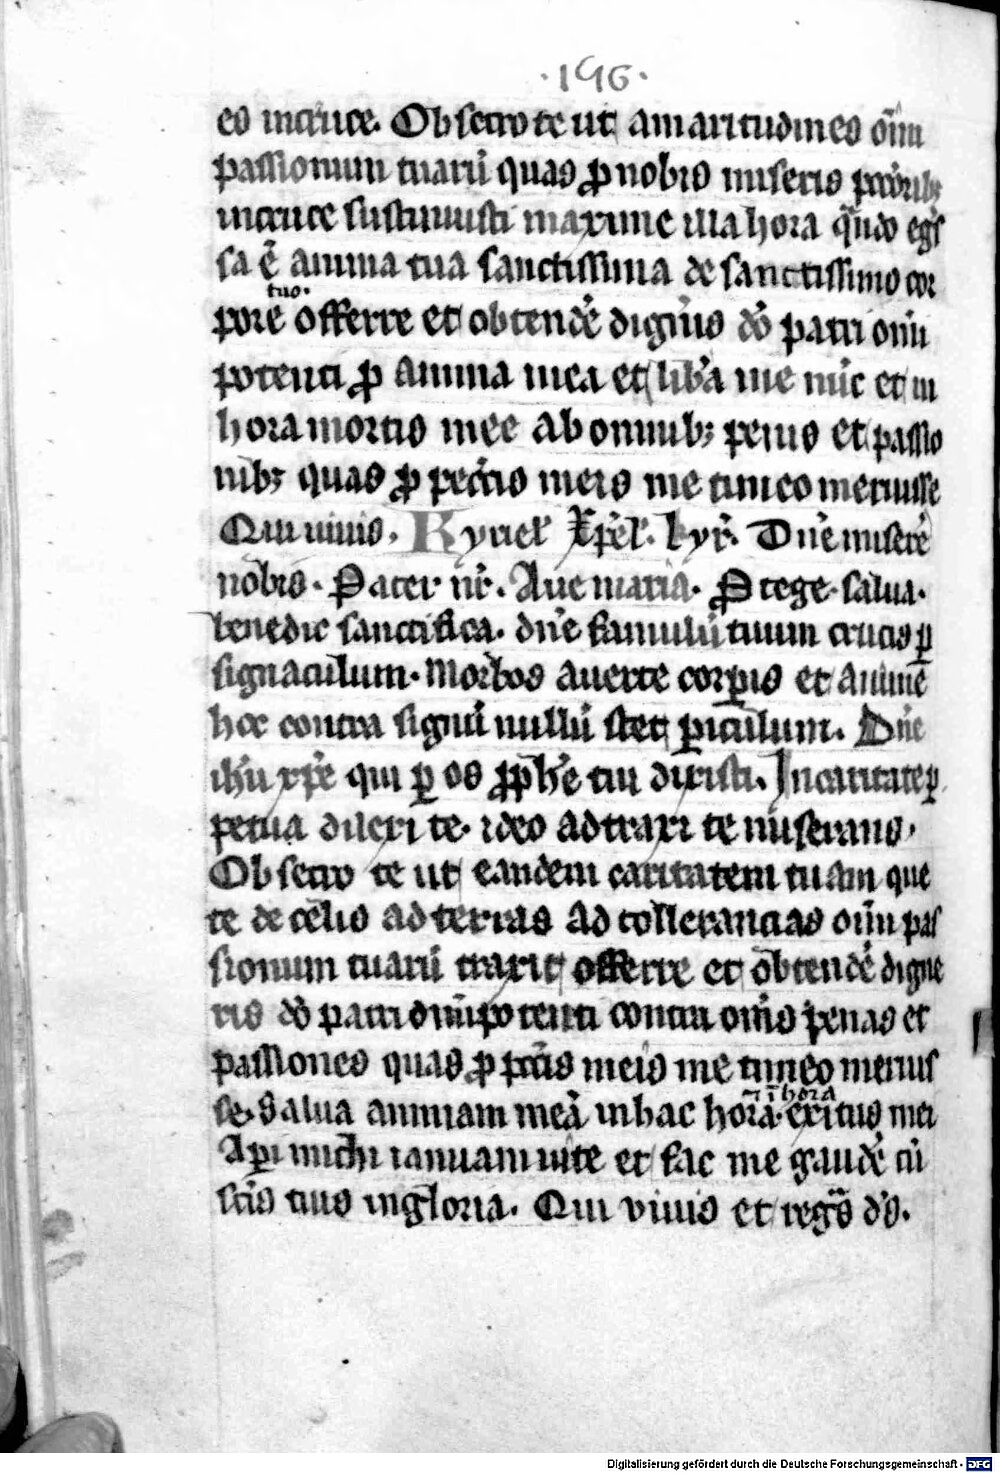 ·196·
es incruce. Obsecro te ut amaritudines om̅
passionum tuaru̅ quas ꝓ nobis miseris pctōrib;
incruce sustinuisti maxime illa hora qn̅do egs̄
sa ē anima tua sanctissima de sanctissimo cor
tuo.
pore offerre et obtende᷑ digne᷑is dō patri om̅i
potenti ꝓ anima mea et lib᷑a me nu̅c et in
hora mortis mee ab omnib; penis et passio
nib; quas ꝓ pecc̅is meis me timeo meruisse
Qui viuis. Kyriel᷑ xp̅el᷑. kyr᷑. Dn̅e misere᷑
nobis. Pater nr᷑. Aue maria. Ꝓtege. salua.
benedic sanctifica. dn̅e famulu̅ tuum crucis ꝑ
signaculum. Morbos auerte corꝑis et anime
hoc contra signu̅ nullu̅ stet ꝑiculum. Dn̅e
ih̅u xp̅e qui ꝑ os ꝓph̅e tui dixisti. In caritate ꝑ
petua dilexi te. ideo adtraxi te miserans.
Obsecro te ut eandem caritatem tuam que
te de celis ad terras ad tollerancias om̅i pas
sionum tuaru̅ traxit offerre et obtende᷑ digne
ris dō patri om̅ipotenti contra om̅s penas et
passiones quas ꝓ pcc̅is meis me timeo meruis
⁊ ī hora
se. Salua animam meā in hac hora. exitus mei
Aꝑi michi ianuam uite et fac me gaude᷑ cu̅
sc̅is tuis in gloria. Qui viuis et regn̅s d̅s.
Digitalisierung gefördert durch die Deutsche Forschungsgemeinschaft - DFG